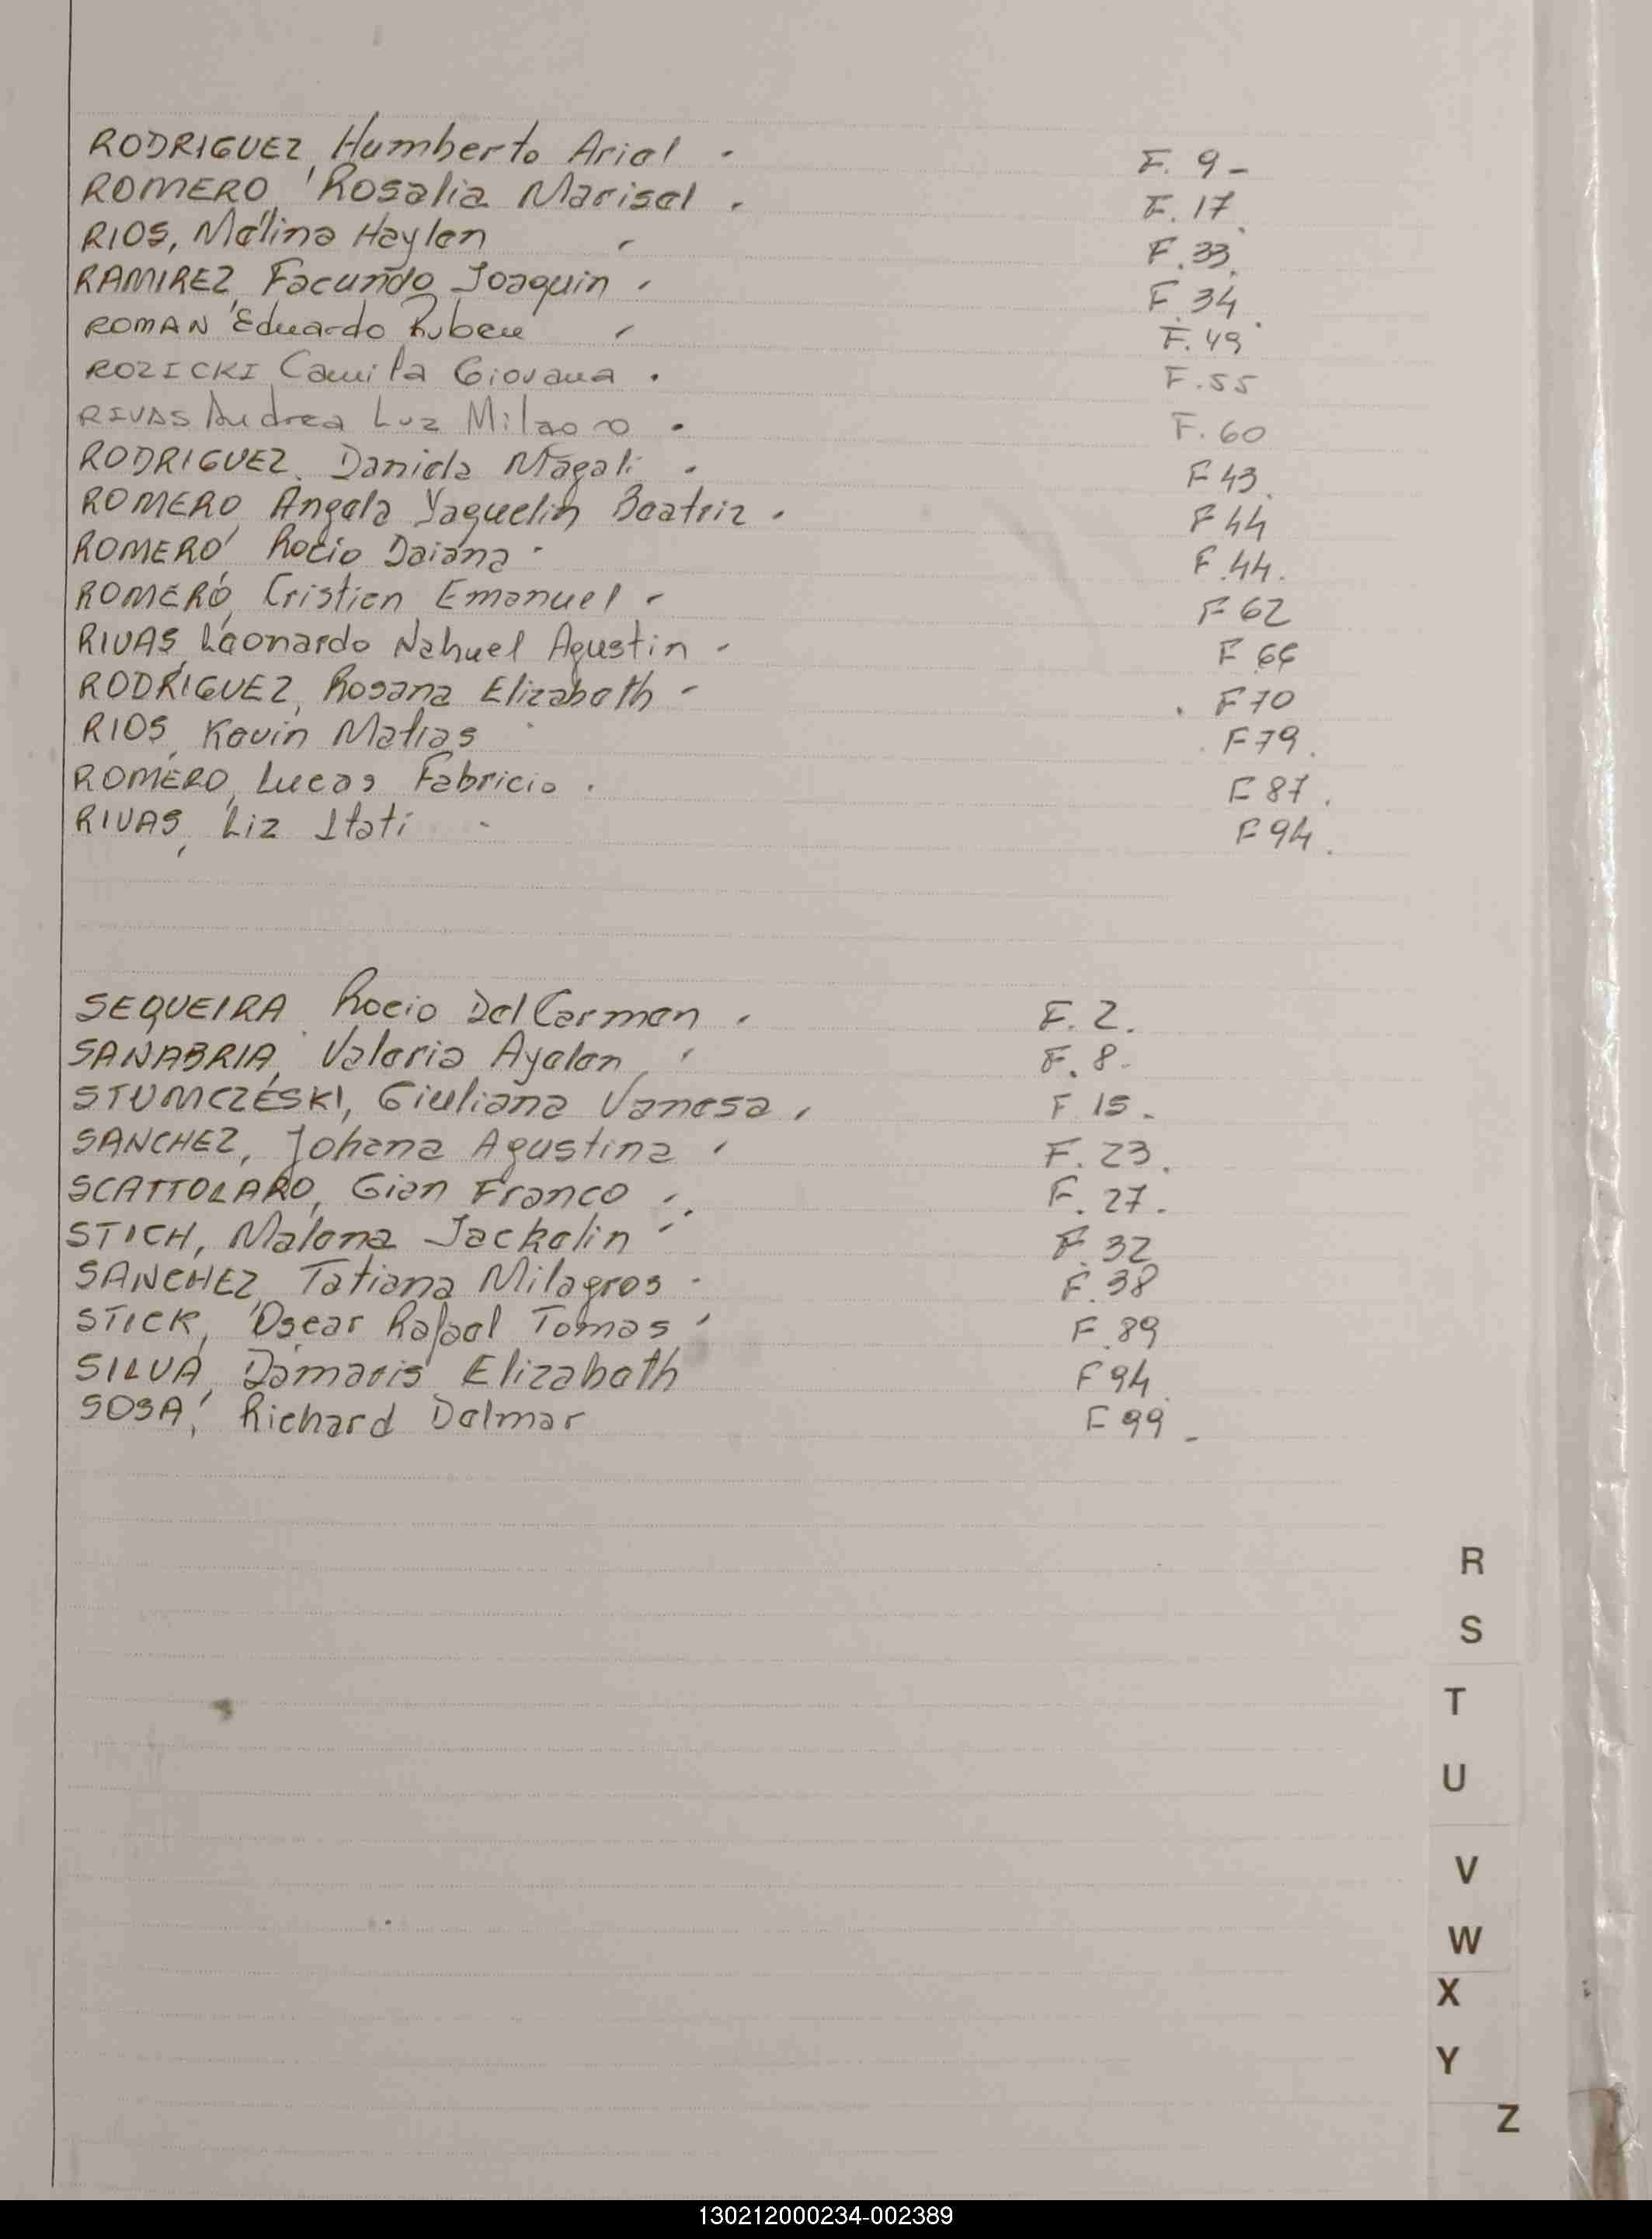 RODRIGUEZ, Humberto Ariel - F. 9 -
ROMERO, Rosalia Marisel . F. 17.
RIOS, Melina Haylen - F. 33.
RAMIREZ, Facundo Joaquin - F. 34.
ROMAN, Eduardo Ruben - F. 49
ROZICKI, Camila Giovana . F. 55
RIVAS Andrea Luz Milagro . F. 60
RODRIGUEZ, Daniela Magali - F 43.
ROMERO, Angela Yaquelin Beatriz . F 44
ROMERO, Rocio Daiana - F. 44.
ROMERO, Cristian Emanuel - F 62
RIVAS, Leonardo Nahuel Agustin - F 66
RODRIGUEZ, Rosana Elizabeth - F 70
RIOS, Kevin Matias F 79.
ROMERO, Lucas Fabricio . F 87.
RIVAS, Liz Itati - F 94.
SEQUEIRA, Rocio Del Carmen - F. 2.
SANABRIA, Valeria Ayelen - F. 8.
STUMCZESKI, Giuliana Vanesa - F 15.
SANCHEZ, Johana Agustina - F. 23.
SCATTOLARO, Gian Franco - F. 27.
STICH, Malena Jackelin - F. 32
SANCHEZ, Tatiana Milagros - F. 38
STICK, Oscar Rafael Tomas - F. 89
SILVA, Damaris Elizabeth F 94.
SOSA, Richard Delmar F 99 -
R
S
T
U
V
W
X
Y
Z
130212000234-002389